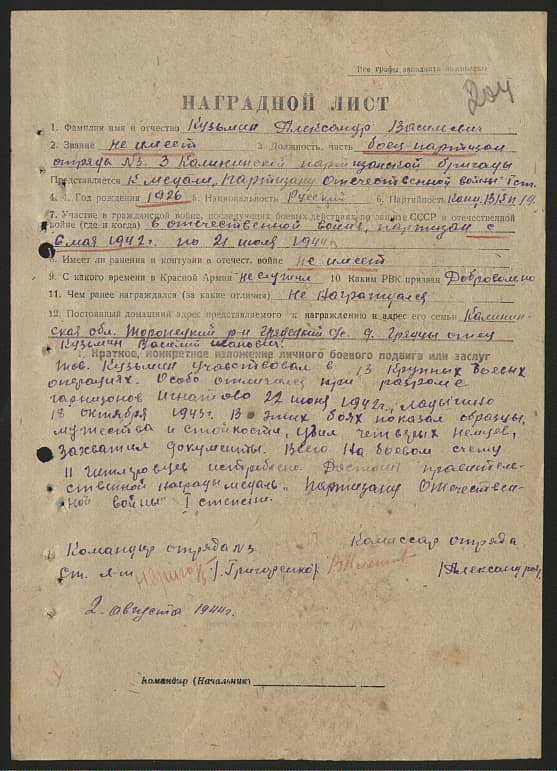 Все графы заполнять полностью
204
НАГРАДНОЙ ЛИСТ
1. Фамилия имя и отчество Кузьмин Александр Васильевич
2. Звание не имеет 3. Должность, часть боец-партизан
отряда №3. 3 Калининской партизанской бригады
Представляется К медали "Партизану Отечественной войны" I ст.
4. Год рождения 1926 5. Национальность Русский 6. Партийность
7. Участие в гражданской войне, последующих боевых действиях по защите СССР и отечественной
войне (где и когда) в отечественной войне, партизан с
6 мая 1942 г. по 21 июля 1944 г.
8. Имеет ли ранения и контузии в отечест. войне не имеет
9. С какого времени в Красной Армии не служил 10 Каким РВК призван Добровольно
11. Чем ранее награждался (за какие отличия) не награждался
12. Постоянный домашний адрес представляемого к награждению и адрес его семьи Калинин-
ская обл. Торопецкий р-н Грядецкий с/с. д. Грядцы отец
Кузьмин Василий Иванович.
I. Краткое, конкретное изложение личного боевого подвига или заслуг
Тов. Кузьмин участвовал в 13 крупных боевых
операциях. Особо отличился при разгроме
гарнизонов Игнатово 22 июня 1942 г.,
18 октября 1943 г. В этих боях показал образцы
мужества и стойкости, убил четырёх немцев,
захватил документы. Всего на боевом счету
11 гитлеровцев истреблено. Достоин правитель-
ственной награды медаль "Партизану Отечествен-
ной войны" I степени.
Командир отряда №3 Комиссар отряда
Ст. л-т /Григоренко/ /Александров/
2 августа 1944 г.
Командир (Начальник)